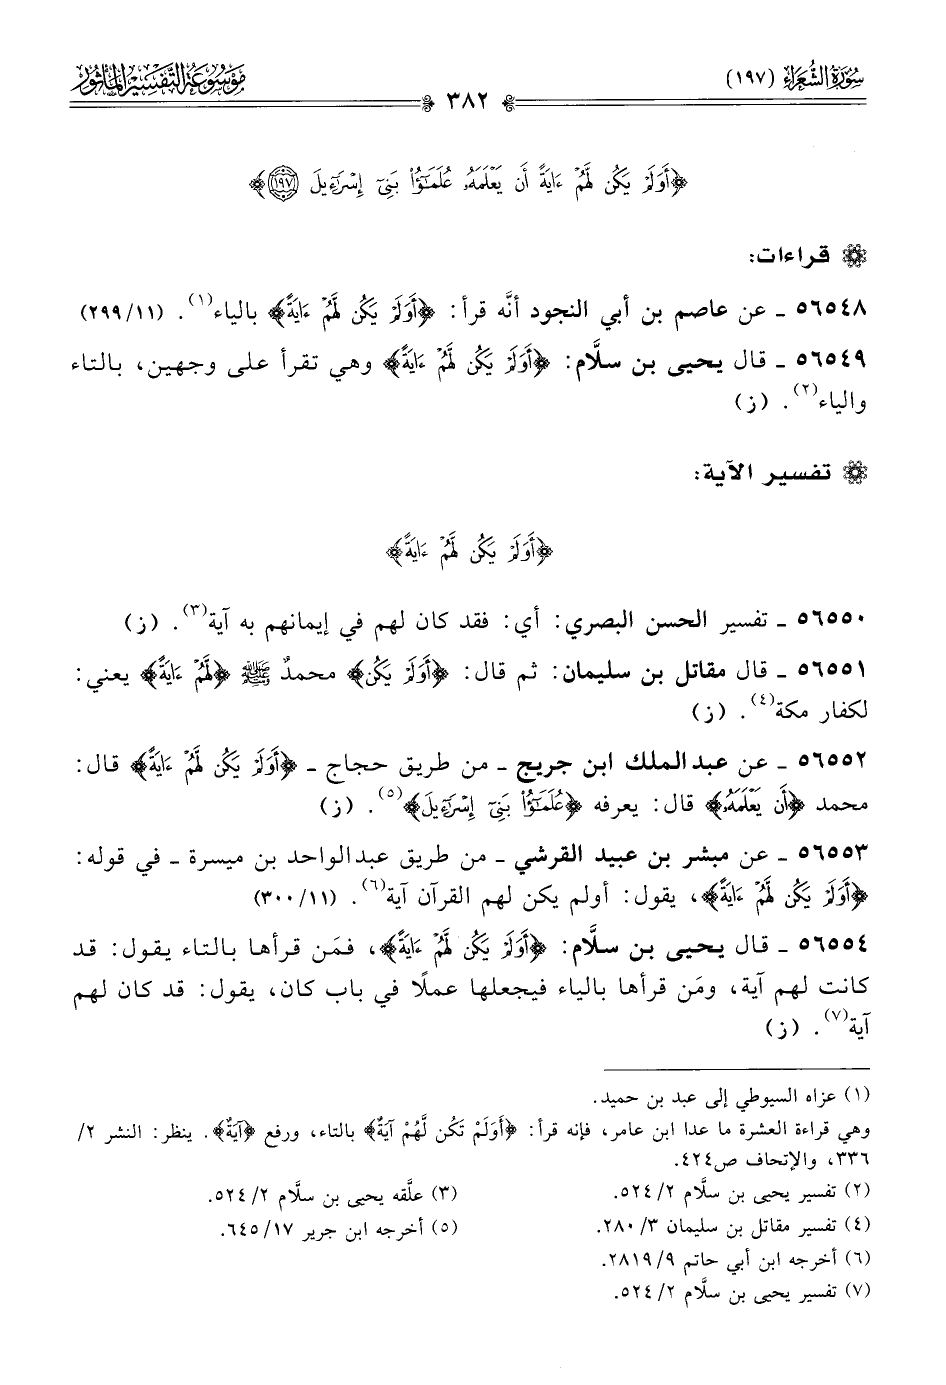 سُورَةُ الشُّعَرَاءِ (١٩٧)
موسوعة التفسير المأثور
٣٨٢
﴿أَوَلَمْ يَكُن لَّهُمْ ءَايَةً أَن يَعْلَمَهُۥ عُلَمَٰٓؤُا۟ بَنِىٓ إِسْرَٰٓءِيلَ ١٩٧﴾
قراءات:
٥٦٥٤٨ ـ عن عاصم بن أبي النجود أنَّه قرأ: ﴿أَوَلَمْ يَكُن لَّهُمْ ءَايَةً﴾ بالياء(١). (٢٩٩/١١)
٥٦٥٤٩ ـ قال يحيى بن سلَّام: ﴿أَوَلَمْ يَكُن لَّهُمْ ءَايَةً﴾ وهي تقرأ على وجهين، بالتاء
والياء(٢). (ز)
تفسير الآية:
﴿أَوَلَمْ يَكُن لَّهُمْ ءَايَةً﴾
٥٦٥٥٠ ـ تفسير الحسن البصري: أي: فقد كان لهم في إيمانهم به آية(٣). (ز)
٥٦٥٥١ ـ قال مقاتل بن سليمان: ثم قال: ﴿أَوَلَمْ يَكُن﴾ محمدٌ ﷺ ﴿لَّهُمْ ءَايَةً﴾ يعني:
لكفار مكة(٤). (ز)
٥٦٥٥٢ ـ عن عبد الملك ابن جريج ـ من طريق حجاج ـ ﴿أَوَلَمْ يَكُن لَّهُمْ ءَايَةً﴾ قال:
محمد ﴿أَن يَعْلَمَهُۥ﴾ قال: يعرفه ﴿عُلَمَٰٓؤُا۟ بَنِىٓ إِسْرَٰٓءِيلَ﴾(٥). (ز)
٥٦٥٥٣ ـ عن مبشر بن عبيد القرشي ـ من طريق عبد الواحد بن ميسرة ـ في قوله:
﴿أَوَلَمْ يَكُن لَّهُمْ ءَايَةً﴾، يقول: أولم يكن لهم القرآن آية(٦). (٣٠٠/١١)
٥٦٥٥٤ ـ قال يحيى بن سلَّام: ﴿أَوَلَمْ يَكُن لَّهُمْ ءَايَةً﴾، فمَن قرأها بالتاء يقول: قد
كانت لهم آية، ومَن قرأها بالياء فيجعلها عملًا في باب كان، يقول: قد كان لهم
آية(٧). (ز)
(١) عزاه السيوطي إلى عبد بن حميد.
وهي قراءة العشرة ما عدا ابن عامر، فإنه قرأ: ﴿أَوَلَمْ تَكُن لَّهُمْ آيَةٌ﴾ بالتاء، ورفع ﴿آيَةٌ﴾. ينظر: النشر ٢/
٣٣٦، والإتحاف ص٤٢٤.
(٢) تفسير يحيى بن سلَّام ٥٢٤/٢. (٣) علَّقه يحيى بن سلَّام ٥٢٤/٢.
(٤) تفسير مقاتل بن سليمان ٢٨٠/٣. (٥) أخرجه ابن جرير ٦٤٥/١٧.
(٦) أخرجه ابن أبي حاتم ٢٨١٩/٩.
(٧) تفسير يحيى بن سلَّام ٥٢٤/٢.